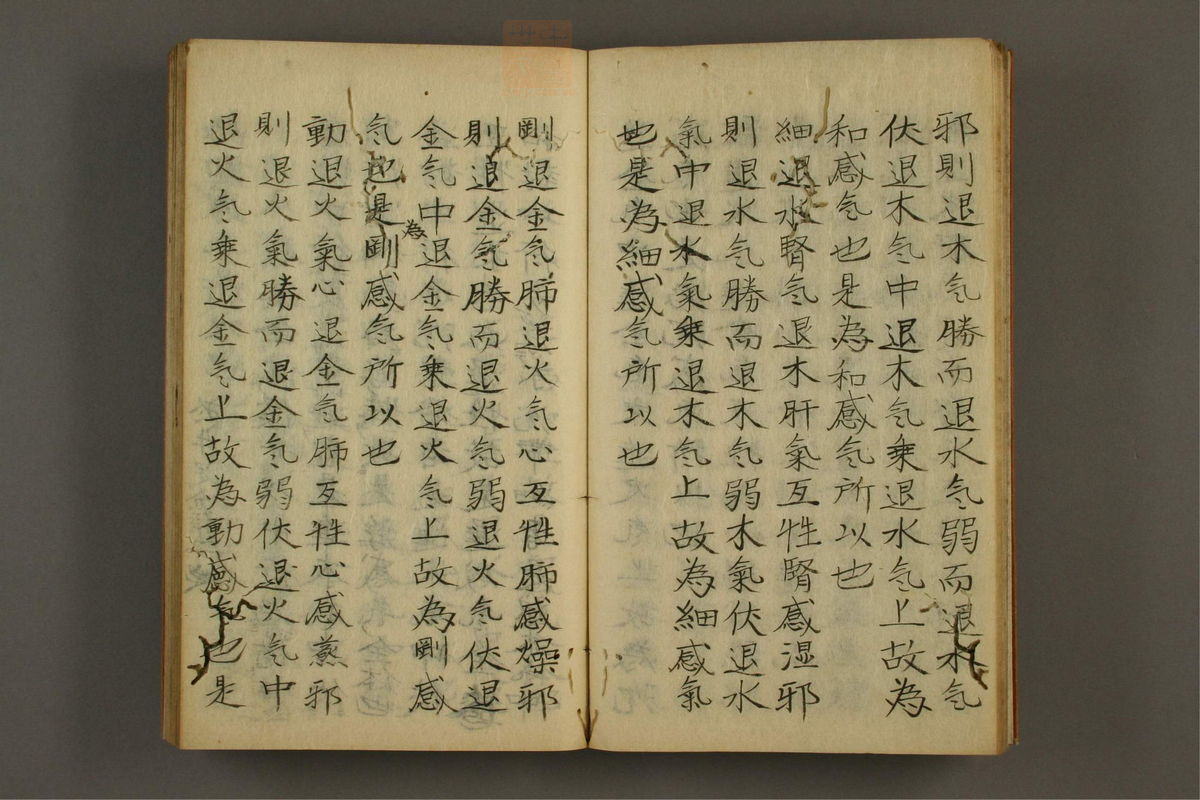 邪則退木气勝而退水气弱而退水气
伏退木气中退木气乗退水气上故為
和感气也是為和感气所以也
細退水腎气退木肝氣互牲腎感湿邪
則退水气勝而退木气弱木氣伏退水
氣中退水氣乗退木气上故為細感氣
也是為細感气所以也
剛退金气肺退火气心互牲肺感燥邪
則退金气勝而退火气弱退火气伏退
金气中退金气乗退火气上故為剛感
气也是為剛感气所以也
動退火氣心退金气肺互牲心感蒸邪
則退火氣勝而退金气弱伏退火气中
退火气乗退金气上故為動感气也是